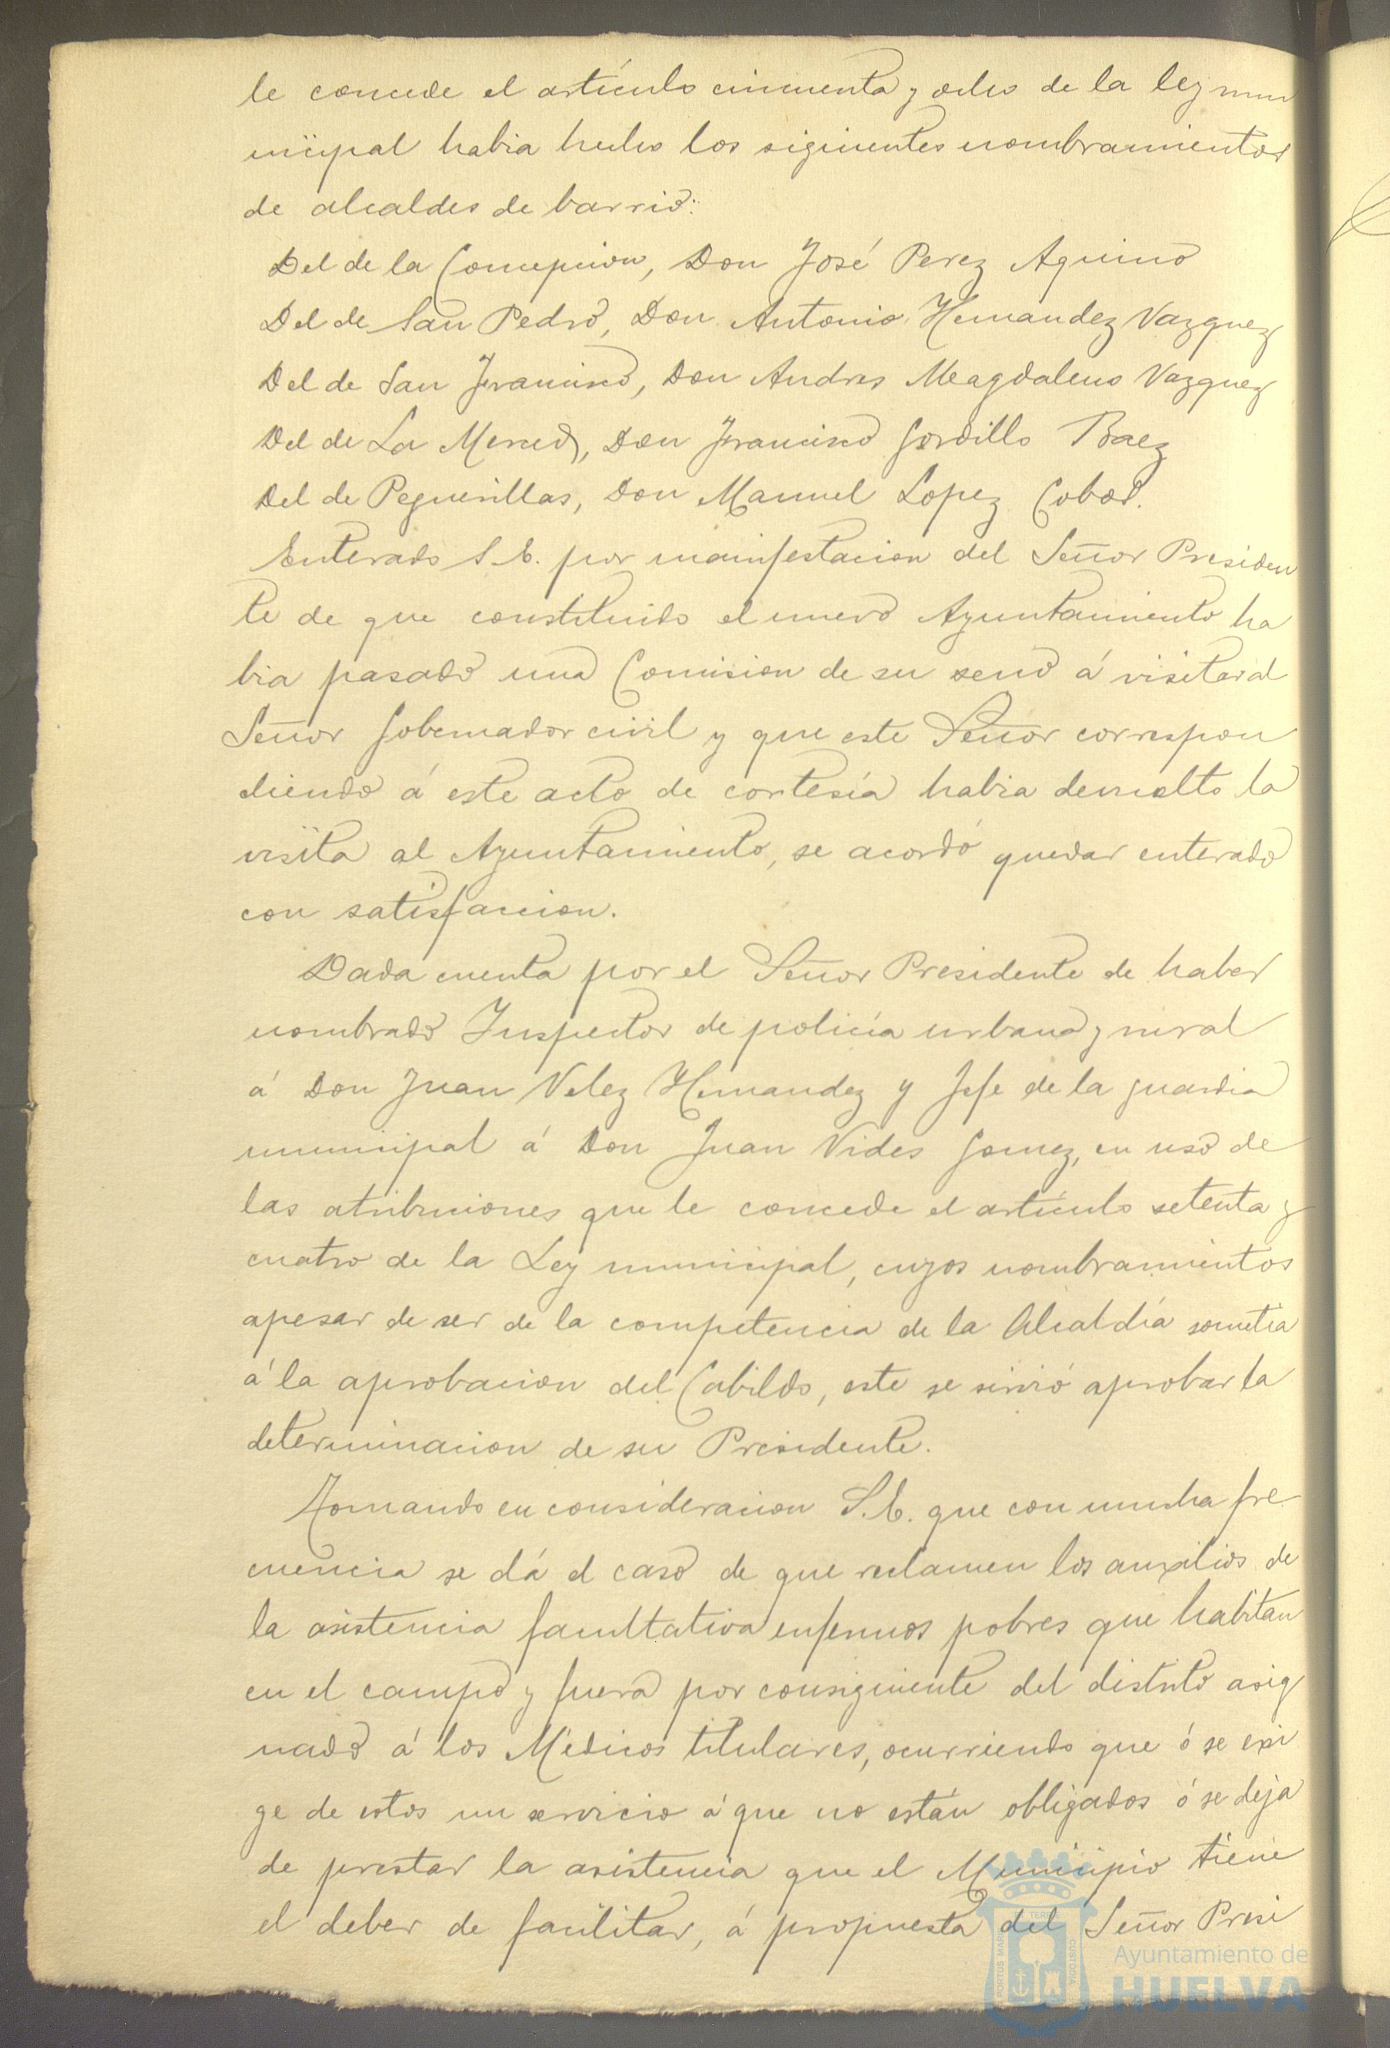 le concede el artículo cincuenta y ocho de la ley mun
icipal habia hecho los siguientes nombramientos
de alcaldes de barrio:
Del de la Concepcion, Don José Perez Aquino
Del de San Pedro, Don Antonio Hernandez Vazquez
Del de San Francisco, Don Andres Magdaleno Vazquez
Del de La Merced, Don Francisco Gordillo Baez
Del de Peguerillas, Don Manuel Lopez Cobos.
Enterado S. E. por manifestacion del Señor Presiden
te de que constituido el nuevo Ayuntamiento ha
bia pasado una Comision de su seno á visitar al
Señor Gobernador civil y que este Señor correspon
diendo á este acto de cortesía habia devuelto la
visita al Ayuntamiento, se acordó quedar enterado
con satisfaccion.
Dada cuenta por el Señor Presidente de haber
nombrado Inspector de policía urbana y rural
á Don Juan Velez Hernandez y Jefe de la guardia
municipal á Don Juan Vides Gomez, en uso de
las atribuciones que le concede el artículo setenta y
cuatro de la Ley municipal, cuyos nombramientos
apesar de ser de la competencia de la Alcaldía sometia
á la aprobacion del Cabildo, este se sirvió aprobar la
determinacion de su Presidente.
Tomando en consideracion S. E. que con mucha fre
cuencia se dá el caso de que reclamen los auxilios de
la asistencia facultativa enfermos pobres que habitan
en el campo y fuera por consiguiente del distrito asig
nado á los Médicos titulares, ocurriendo que ó se exi
ge de estos un servicio á que no están obligados ó se deja
de prestar la asistencia que el Municipio tiene
el deber de facilitar, á propuesta del Señor Presi
PORTUS MARIS ET TERRAE CUSTODIA
Ayuntamiento de
HUELVA